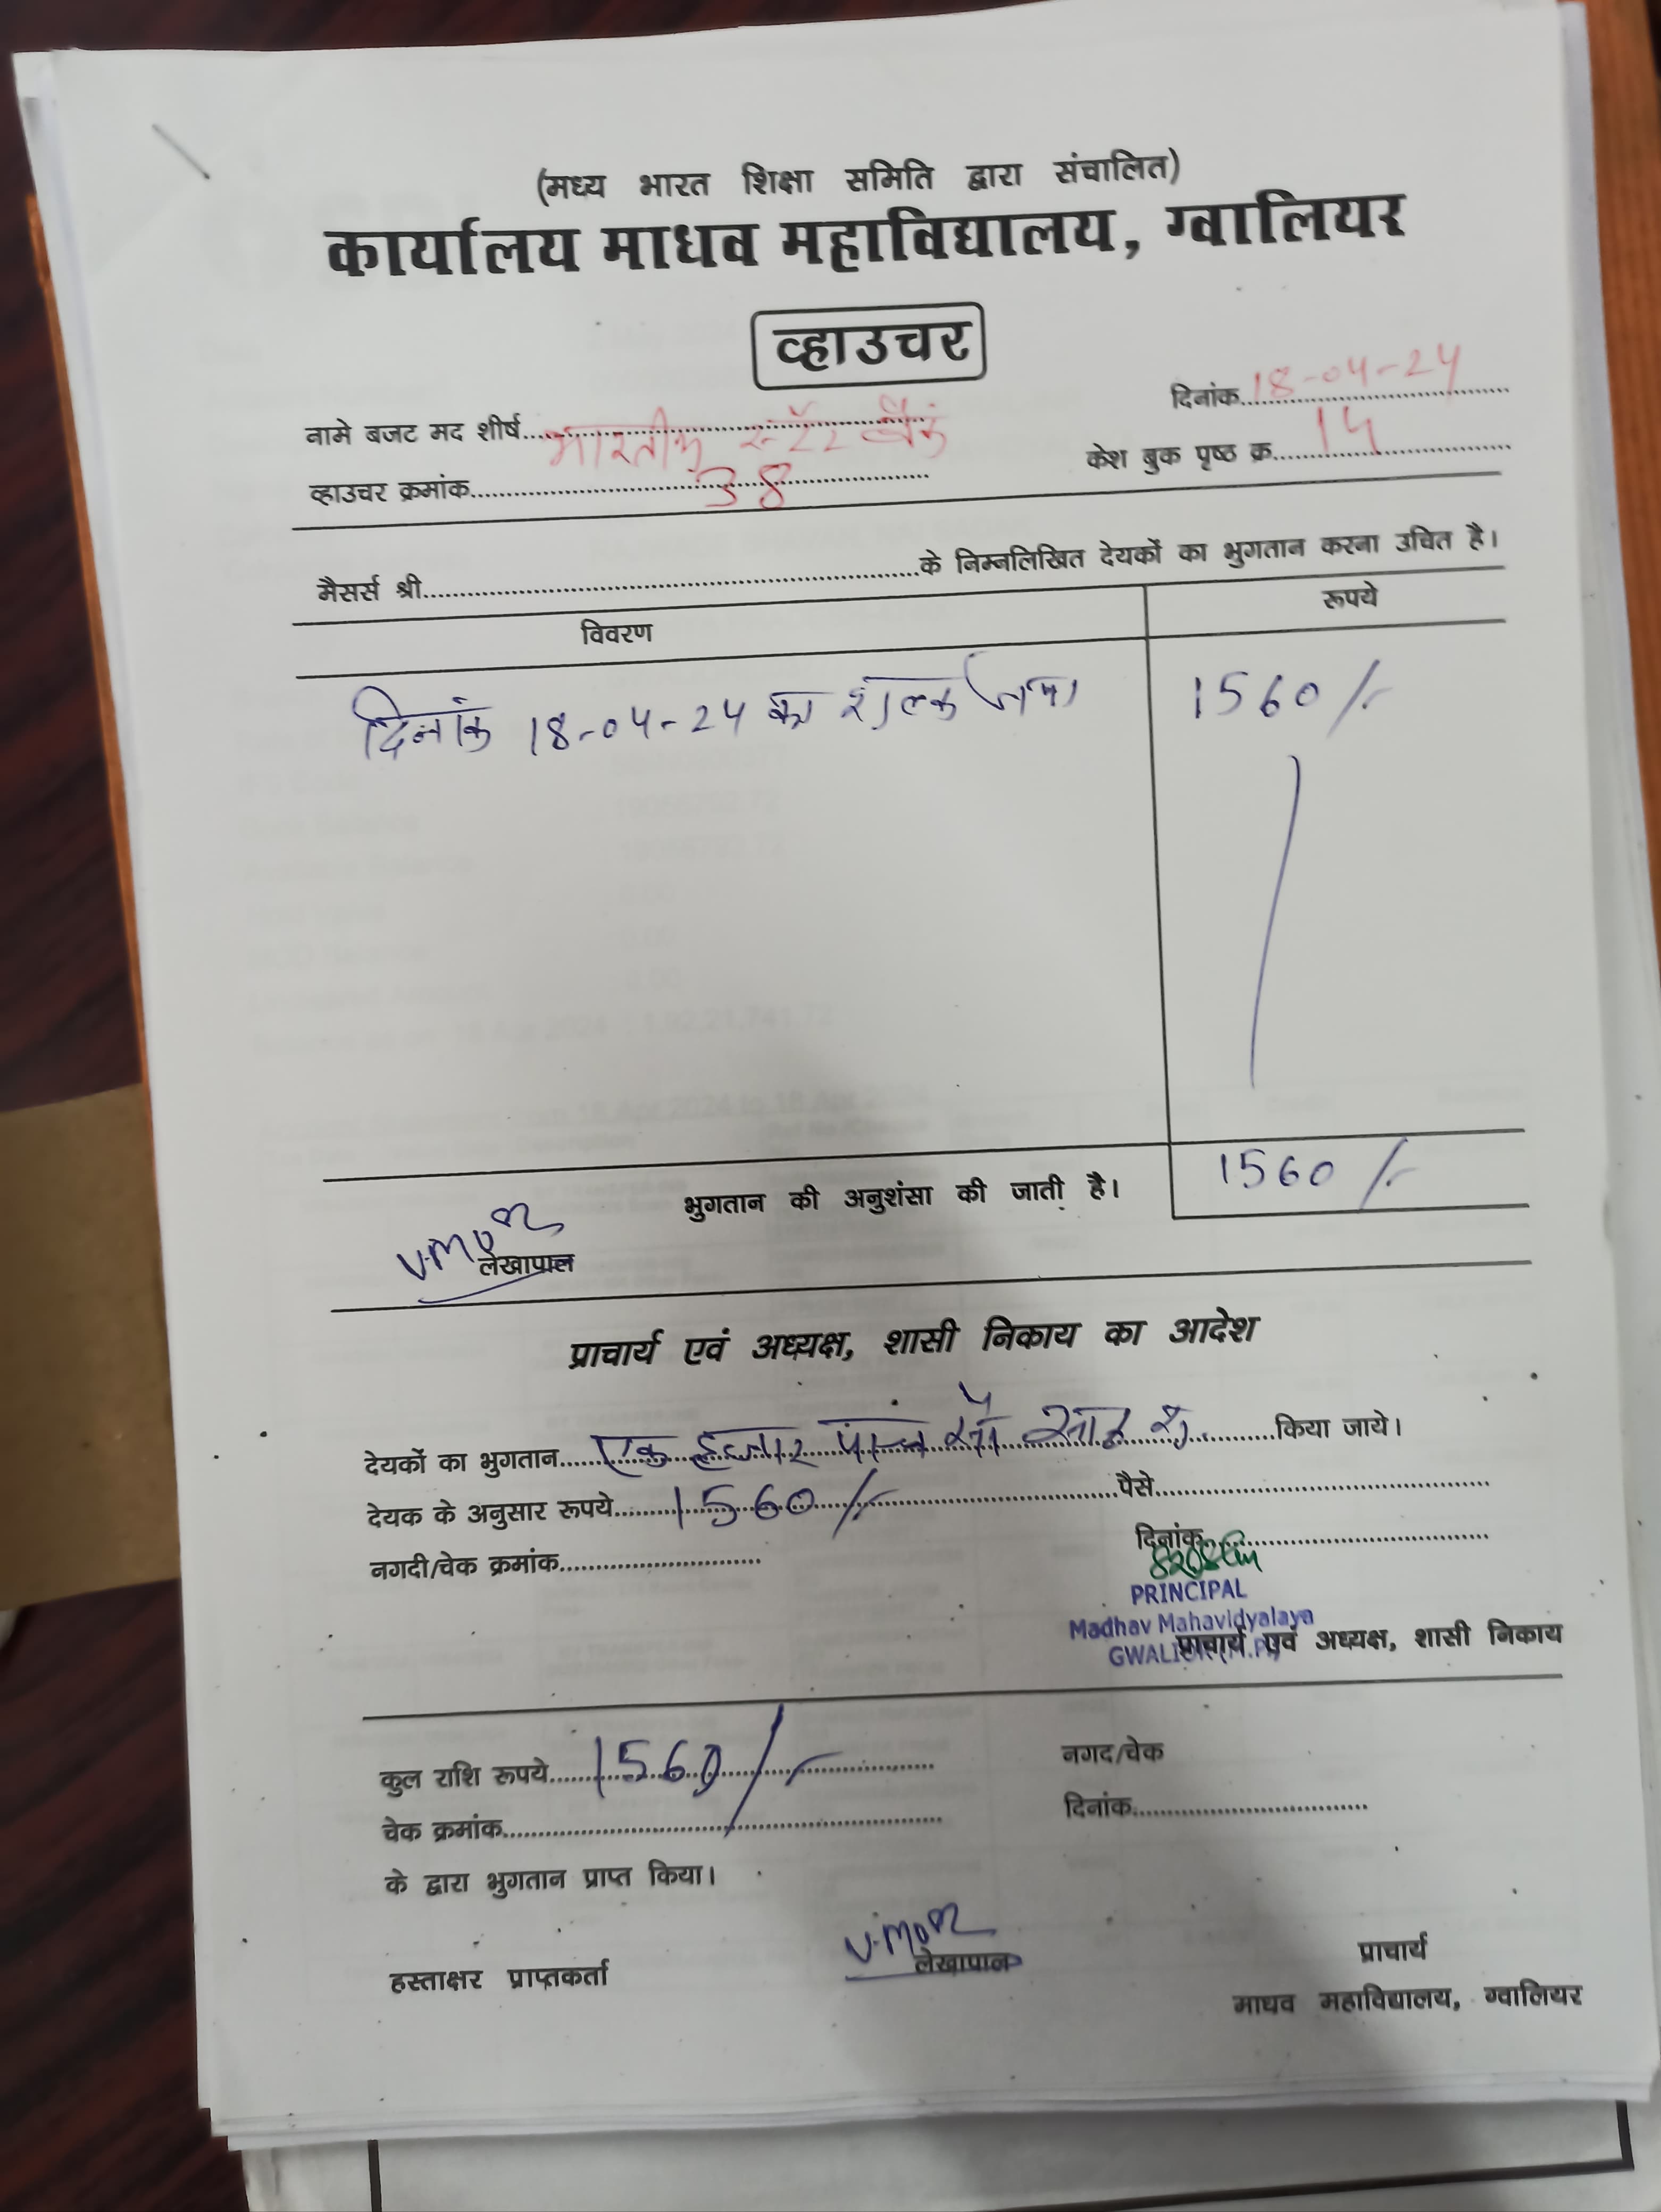 (मध्य भारत शिक्षा समिति द्वारा संचालित)
कार्यालय माधव महाविद्यालय, ग्वालियर
व्हाउचर
दिनांक 18-04-24
नामे बजट मद शीर्ष भारतीय स्टेट बैंक
केश बुक पृष्ठ क्र. 14
व्हाउचर क्रमांक 38
मैसर्स श्री के निम्नलिखित देयकों का भुगतान करना उचित है।
विवरण रूपये
दिनांक 18-04-24 का शुल्क जमा 1560/-
भुगतान की अनुशंसा की जाती है। 1560/-
लेखापाल
प्राचार्य एवं अध्यक्ष, शासी निकाय का आदेश
देयकों का भुगतान एक हजार पांच सौ साठ रु. किया जाये।
देयक के अनुसार रूपये 1560/- पैसे
दिनांक
नगदी/चेक क्रमांक
PRINCIPAL
Madhav Mahavidyalaya
GWALIOR (M.P.)
प्राचार्य एवं अध्यक्ष, शासी निकाय
कुल राशि रूपये 1560/- नगद/चेक
चेक क्रमांक दिनांक
के द्वारा भुगतान प्राप्त किया।
हस्ताक्षर प्राप्तकर्ता लेखापाल प्राचार्य
माधव महाविद्यालय, ग्वालियर